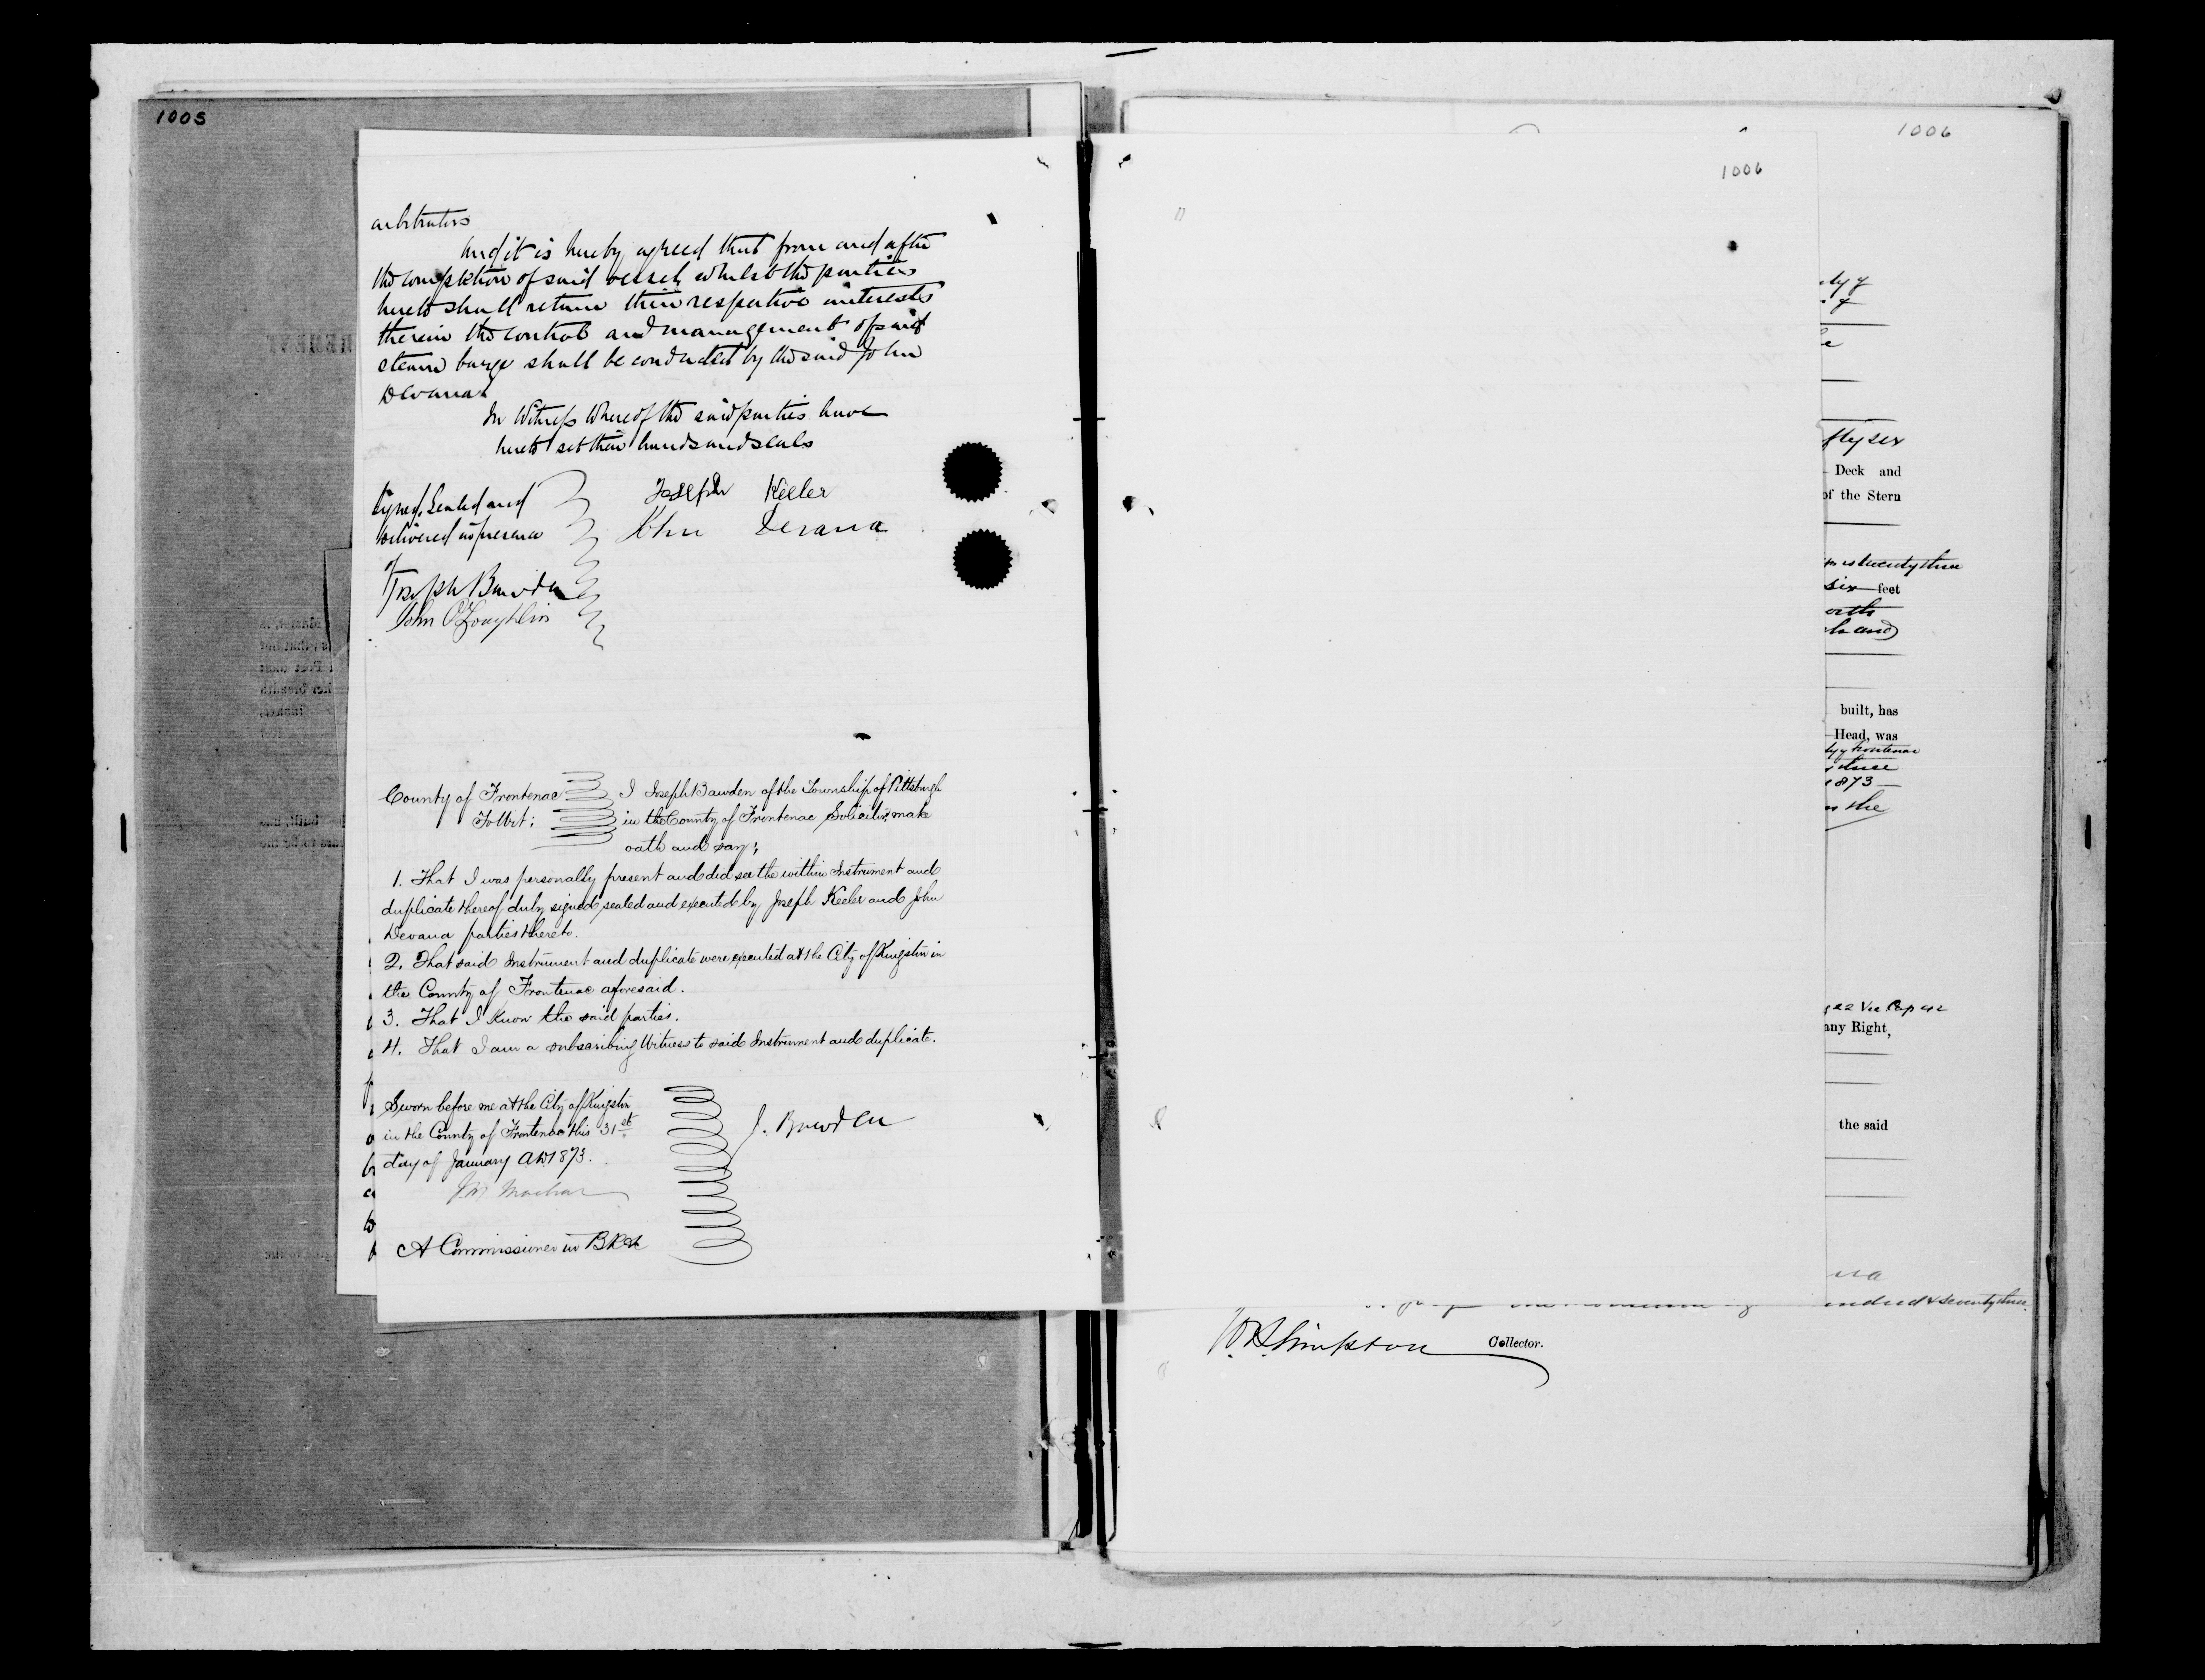 1005
arbitrators
And it is hereby agreed that from and after
the completion of said vessel, whilst the parties
hereto shall retain their respective interests
therein the control and management of said
steam barge shall be conducted by the said John
Devana
In Witness Whereof the said parties have
hereto set their hands and seals
Signed, Sealed and
delivered in presence
of
Joseph Keeler
John Devana
Joseph Bawden
John O'Loughlin
County of Frontenac
To Wit;
I Joseph Bawden of the Township of Pittsburgh
in the County of Frontenac Solicitor, make
oath and say;
1. That I was personally present and did see the within Instrument and
duplicate thereof duly signed sealed and executed by Joseph Keeler and John
Devana parties thereto.
2. That said Instrument and duplicate were executed at the City of Kingston in
the County of Frontenac aforesaid.
3. That I know the said parties.
4. That I am a subscribing Witness to said Instrument and duplicate.
Sworn before me at the City of Kingston
in the County of Frontenac this 31st
day of January AD 1873.
J. Bawden
A Commissioner in BR &c
1006
1006
Deck and
of the Stern
is twenty three
six feet
and
built, has
Head, was
Frontenac
1873
the
22 Vic Cap
any Right,
the said
seventy three
Collector.